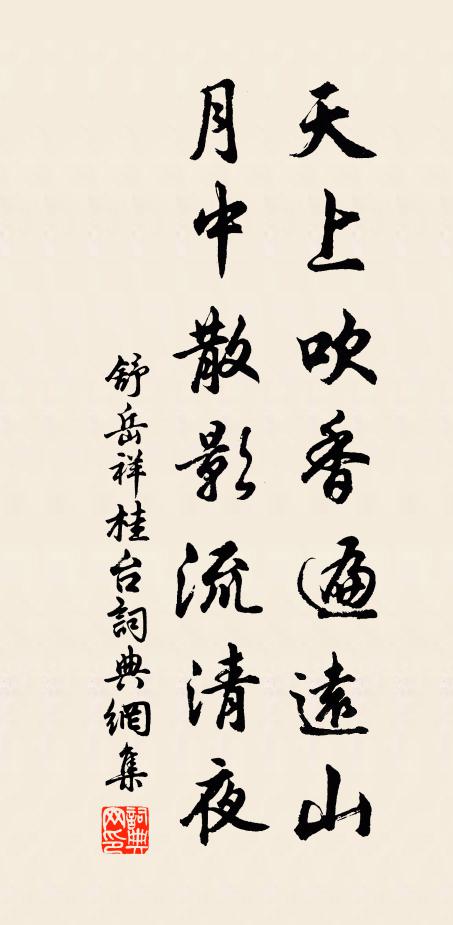 天上吹香遍遠山
月中散影流清夜
舒岳祥桂台詞典網集
詞典网印